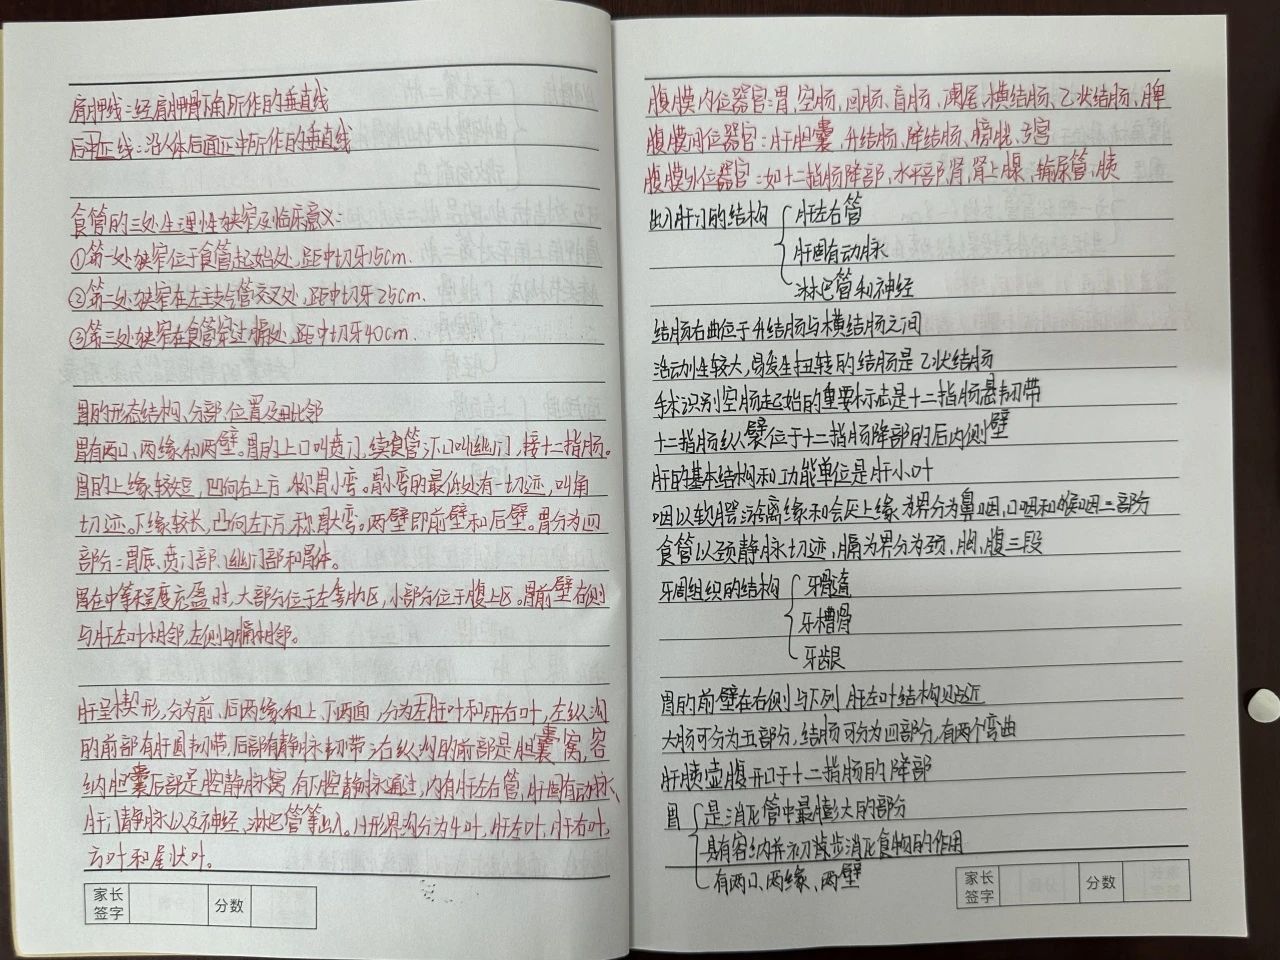 肩胛线:经肩胛骨下角所作的垂直线
后中正线:沿人体后面正中所作的垂直线
食管的三处生理性狭窄及临床意义:
①第一处狭窄位于食管起始处,距中切牙15cm.
②第二处狭窄在左主支气管交叉处,距中切牙25cm.
③第三处狭窄在食管穿过膈处,距中切牙40cm.
胃的形态结构、分部、位置及毗邻
胃有两口、两缘和两壁。胃的上口叫贲门,续食管,下口叫幽门,接十二指肠。
胃的上缘较短,凹向右上方,称胃小弯。胃小弯的最低处有一切迹,叫角
切迹。下缘较长,凸向左下方,称胃大弯。两壁即前壁和后壁。胃分为四
部分:胃底、贲门部、幽门部和胃体。
胃在中等程度充盈时,大部分位于左季肋区,小部分位于腹上区。胃前壁右侧
与肝左叶相邻,左侧与膈相邻。
肝呈楔形,分为前、后两缘和上、下两面,分为左肝叶和肝右叶,左纵沟
的前部有肝圆韧带,后部有静脉韧带,右纵沟的前部是胆囊窝,容
纳胆囊后部是腔静脉窝,有下腔静脉通过,内有肝左右管、肝固有动脉、
肝门静脉以及神经、淋巴管等出入。H形界沟分为4叶,肝左叶、肝右叶,
方叶和尾状叶。
家长签字 分数
腹膜内位器官:胃、空肠、回肠、盲肠、阑尾、横结肠、乙状结肠、脾
腹膜间位器官:肝胆囊、升结肠、降结肠、膀胱、子宫
腹膜外位器官:如十二指肠降部、水平部、肾、肾上腺、输尿管、胰
出入肝门的结构 肝左右管
肝固有动脉
淋巴管和神经
结肠右曲位于升结肠与横结肠之间
活动性较大,易发生扭转的结肠是乙状结肠
手术识别空肠起始的重要标志是十二指肠悬韧带
十二指肠纵襞位于十二指肠降部的后内侧壁
肝的基本结构和功能单位是肝小叶
咽以软腭游离缘和会厌上缘为界分为鼻咽,口咽和喉咽三部分
食管以颈静脉切迹,膈为界分为颈、胸、腹三段
牙周组织的结构 牙骨膏
牙槽骨
牙龈
胃的前壁在右侧与下列肝左叶结构贴近
大肠可分为五部分,结肠可分为四部分,有两个弯曲
肝胰壶腹开口于十二指肠的降部
胃 是消化管中最膨大的部分
具有容纳并初步消化食物的作用
有两口、两缘、两壁
家长签字 分数